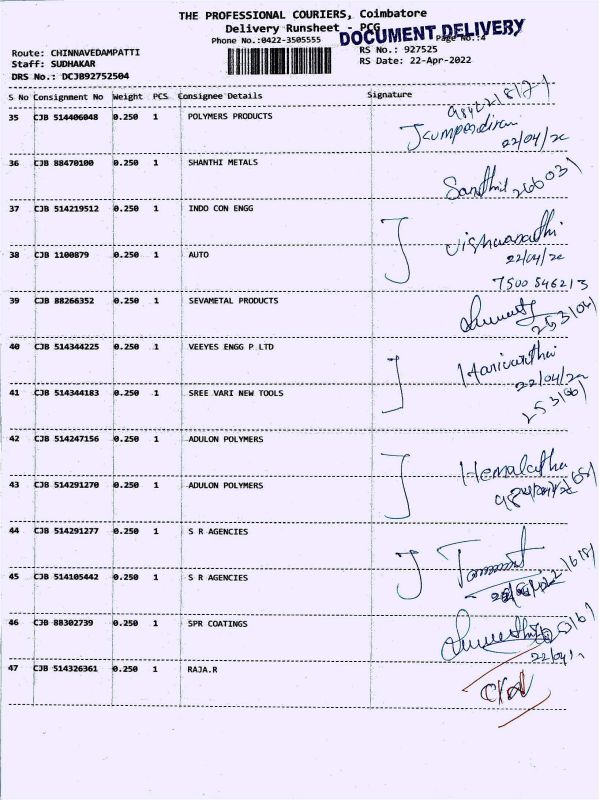 THE PROFESSIONAL COURIERS, Coimbatore
Delivery Runsheet - PCG
DOCUMENT DELIVERY
Phone No.:0422-3505555 Page No.:4
Route: CHINNAVEDAMPATTI RS No.: 927525
Staff: SUDHAKAR RS Date: 22-Apr-2022
DRS No.: DCJB92752504
S No Consignment No Weight PCS Consignee Details Signature
35 CJB 514406048 0.250 1 POLYMERS PRODUCTS
22/04/22
36 CJB 88470100 0.250 1 SHANTHI METALS
Sandhil 266031
37 CJB 514219512 0.250 1 INDO CON ENGG
22/04/22
38 CJB 1100879 0.250 1 AUTO
7500 546213
39 CJB 88266352 0.250 1 SEVAMETAL PRODUCTS
253/04/
40 CJB 514344225 0.250 1 VEEYES ENGG P LTD
22/04/22
41 CJB 514344183 0.250 1 SREE VARI NEW TOOLS
42 CJB 514247156 0.250 1 ADULON POLYMERS
Hemalatha
43 CJB 514291270 0.250 1 ADULON POLYMERS
44 CJB 514291277 0.250 1 S R AGENCIES
45 CJB 514105442 0.250 1 S R AGENCIES
46 CJB 88302739 0.250 1 SPR COATINGS
22/04/
47 CJB 514326361 0.250 1 RAJA.R